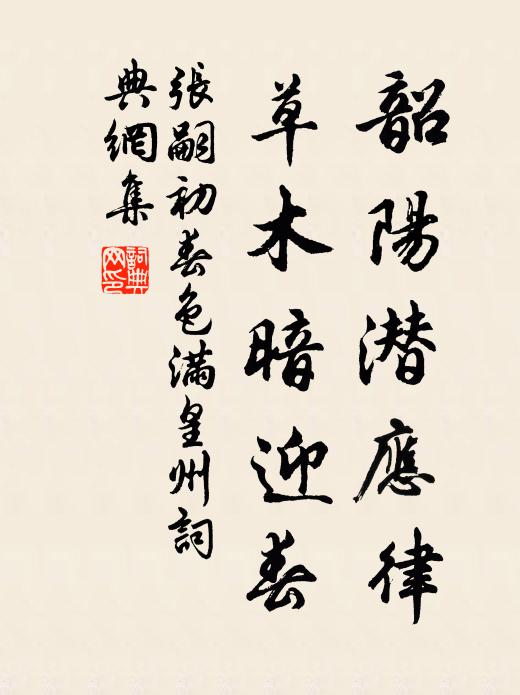 韶陽潜應律
草木暗迎春
張嗣初春色滿皇州詞
典網集
詞典
網印